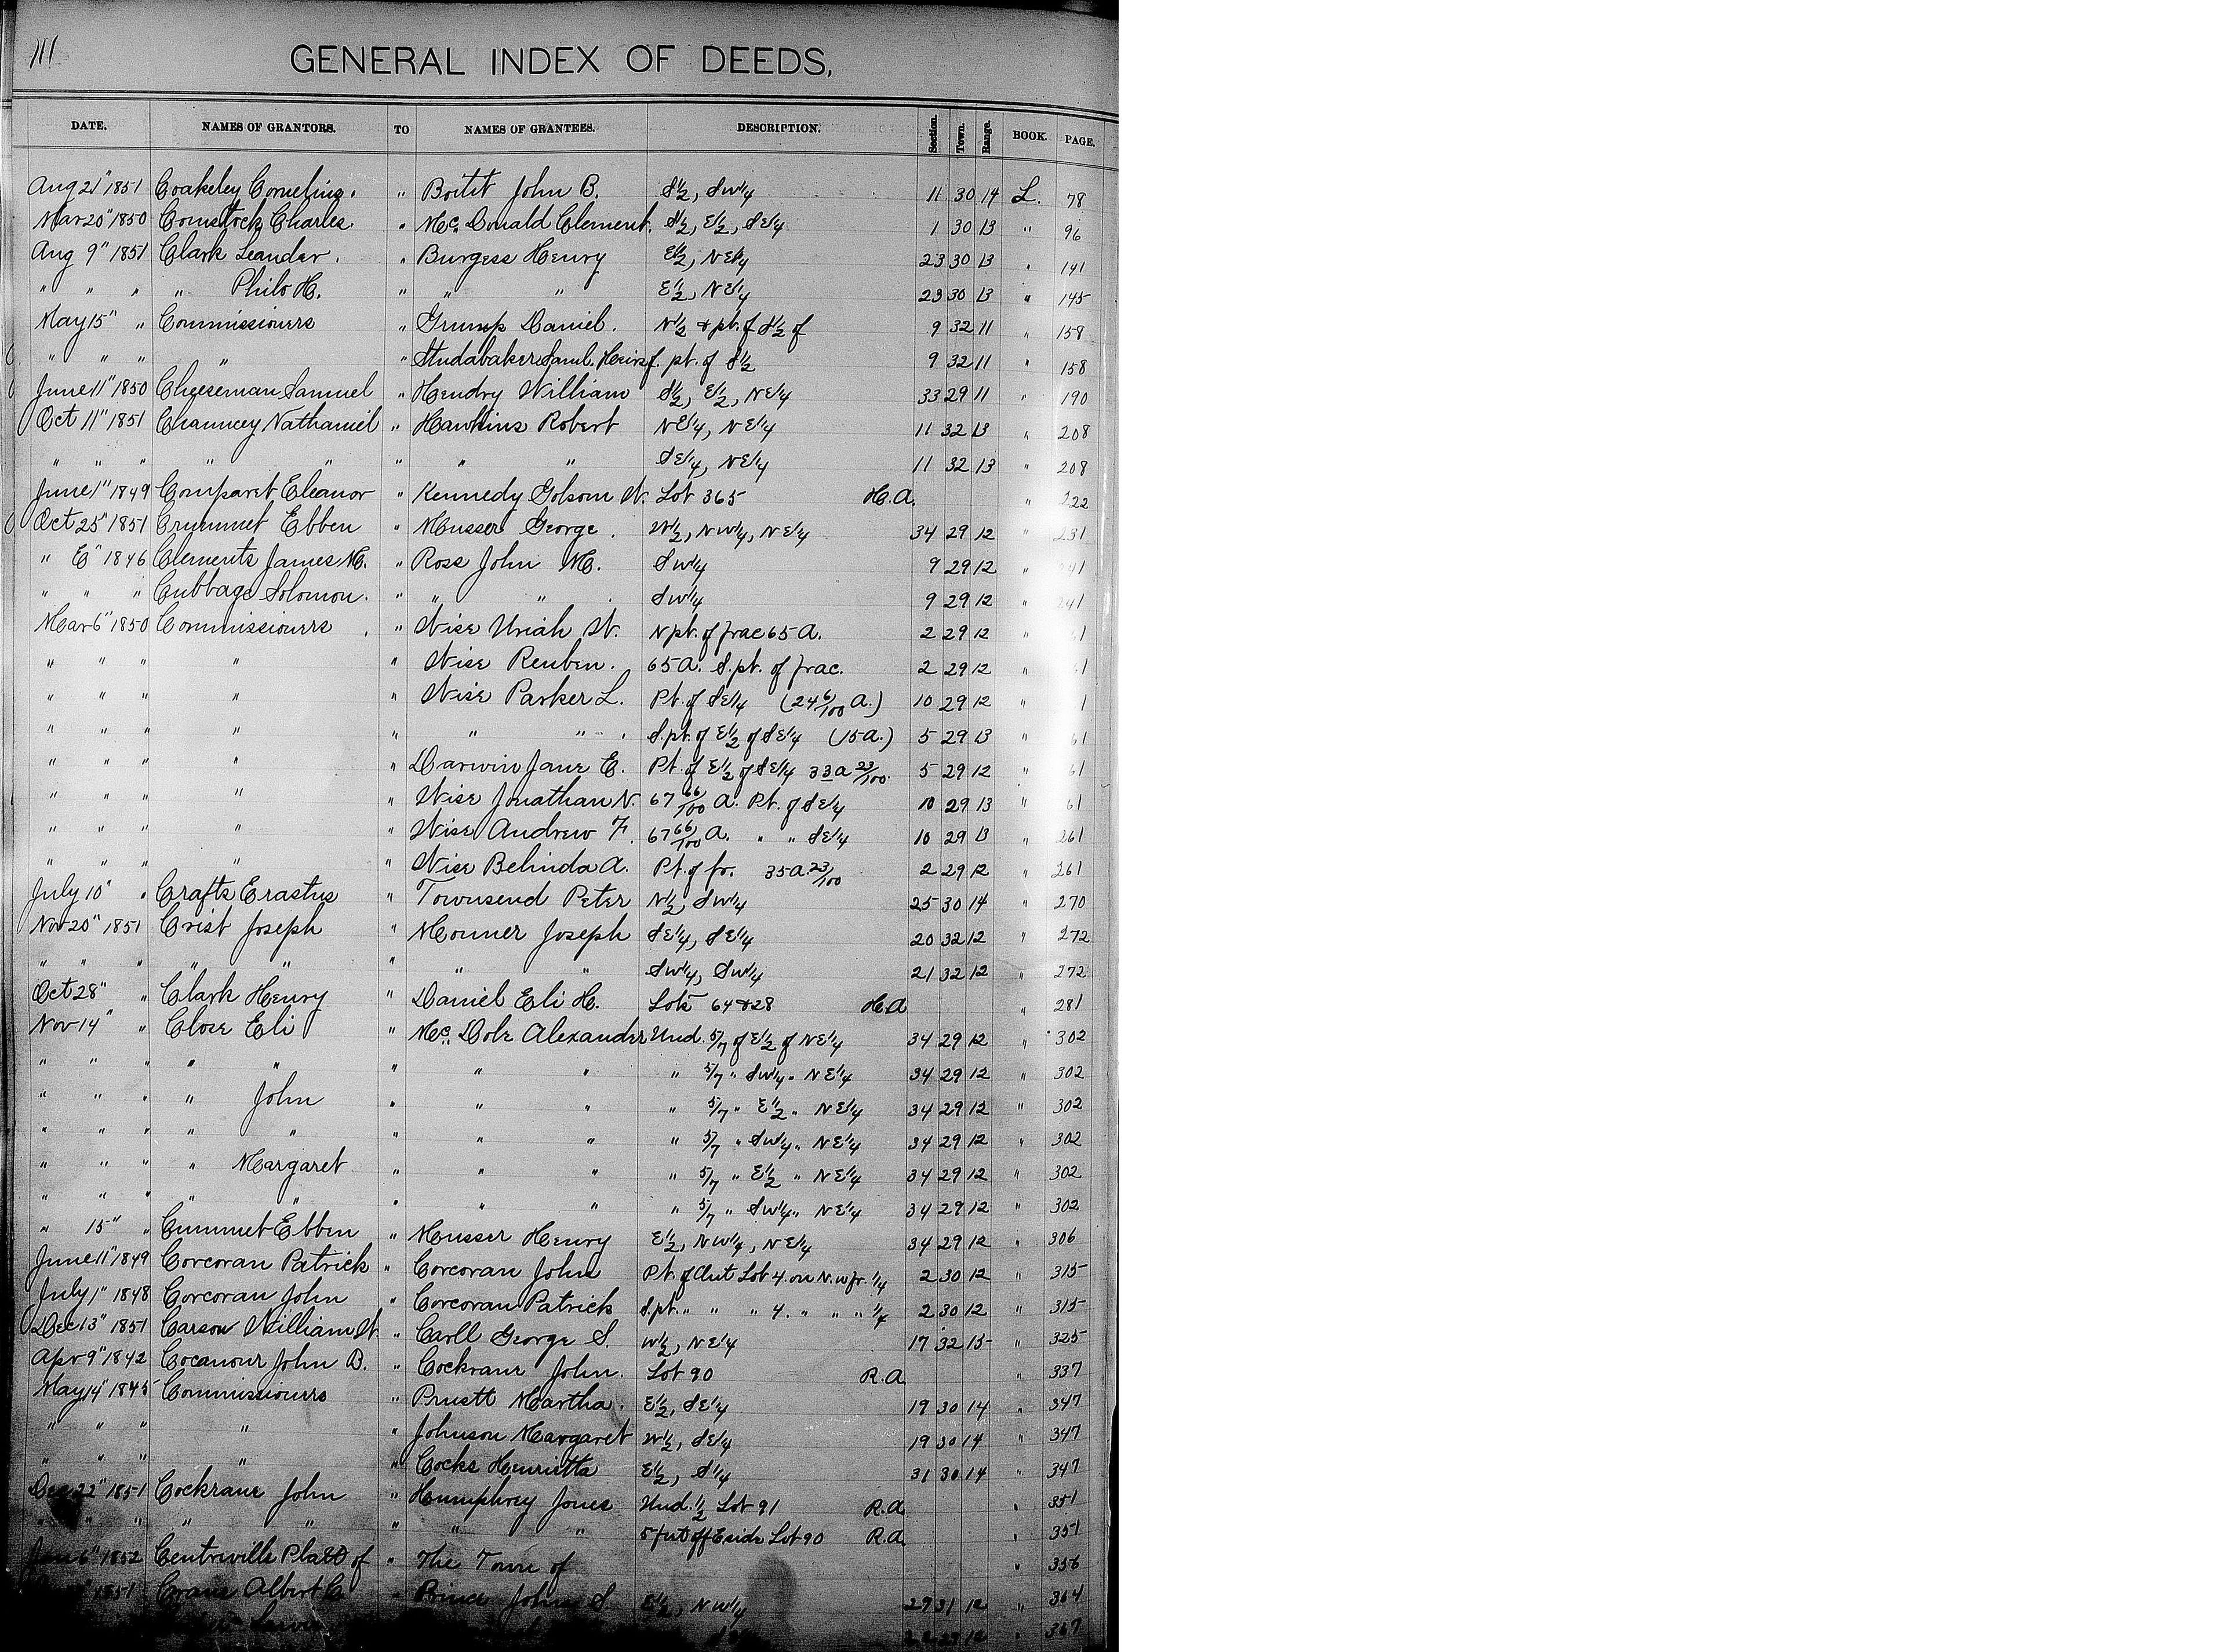 111
GENERAL INDEX OF DEEDS,
DATE. NAMES OF GRANTORS. TO NAMES OF GRANTEES. DESCRIPTION. Section. Town. Range. BOOK. PAGE.
Aug 21" 1851 Coakeley Cornelius. " John B. S1/2, SW1/4 11 30 14 L. 78
Mar 20" 1850 Comstock Charles " Mc. Donald Clement. S1/2, E1/2, SE1/4 1 30 13 " 96
Aug 9" 1851 Clark Leander. " Burgess Henry E1/2, NE1/4 23 30 13 " 141
" " " " Philo H. " " " E1/2, NE1/4 23 30 13 " 145
May 15" " Commissioners " Grump Daniel. N1/2 & pt. of S1/2 of 9 32 11 " 158
" " " " " Studabaker Saml. Heirs of. pt. of S1/2 9 32 11 " 158
June 11" 1850 Cheeseman Samuel " Hendry William S1/2, E1/2, NE1/4 33 29 11 " 190
Oct 11" 1851 Chauncey Nathaniel " Hawkins Robert NE1/4, NE1/4 11 32 13 " 208
" " " " " " " " SE1/4, NE1/4 11 32 13 " 208
June 1" 1849 Comparet Eleanor " Kennedy W. Lot 365 H.A. " 222
Oct 25" 1851 Crummet Ebben " Musser George. W1/2, NW1/4, NE1/4 34 29 12 " 231
" 6" 1846 Clements James M. " Ross John M. SW1/4 9 29 12 " 241
" " " Cubbage Solomon. " " " SW1/4 9 29 12 " 241
Mar 6" 1850 Commissioners. " Wise Uriah W. N pt. of frac 65 A. 2 29 12 " 61
" " " " " Wise Reuben. 65 A. S. pt. of frac. 2 29 12 " 61
" " " " " Wise Parker L. Pt. of SE1/4 (24 6/100 A.) 10 29 12 " 1
" " " " " " " S. pt. of E1/2 of SE1/4 (15 A.) 5 29 13 " 61
" " " " " Darwin Jane E. Pt. of E1/2 of SE1/4 33 a 23/100. 5 29 12 " 61
" " " " " Wise Jonathan N. 67 66/100 A. Pt. of SE1/4 10 29 13 " 61
" " " " " Wise Andrew F. 67 66/100 A. " " SE1/4 10 29 13 " 261
" " " " " Wise Belinda A. Pt. of fr. 35 a 23/100 2 29 12 " 261
July 10" " Crafts Erastus " Townsend Peter N1/2, SW1/4 25 30 14 " 270
Nov 20" 1851 Crist Joseph " Monner Joseph SE1/4, SE1/4 20 32 12 " 272
" " " " " " " " SW1/4, SW1/4 21 32 12 " 272
Oct 28" " Clark Henry " Daniel Eli H. Lots 64 & 28 H.A " 281
Nov 14" " Close Eli " Mc. Dole Alexander Und. 5/7 of E1/2 of NE1/4 34 29 12 " 302
" " " " " " " " " 5/7 " SW1/4 " NE1/4 34 29 12 " 302
" " " " John " " " " 5/7 " E1/2 " NE1/4 34 29 12 " 302
" " " " " " " " " 5/7 " SW1/4 " NE1/4 34 29 12 " 302
" " " " Margaret " " " " 5/7 " E1/2 " NE1/4 34 29 12 " 302
" " " " " " " " " 5/7 " SW1/4 " NE1/4 34 29 12 " 302
" 15" " Cummet Ebben " Musser Henry E1/2, NW1/4, NE1/4 34 29 12 " 306
June 11" 1849 Corcoran Patrick " Corcoran John Pt. of Out Lot 4. on N.W fr. 1/4 2 30 12 " 315
July 1" 1848 Corcoran John " Corcoran Patrick S. pt. " " " 4. " " " 1/4 2 30 12 " 315
Dec 13" 1851 Carson William W. " Carll George S. W1/2, NE1/4 17 32 15 " 325
Apr 9" 1842 Cocanour John B. " Cockrane John. Lot 90 R.A " 337
May 14" 1845 Commissioners " Pruett Martha. E1/2, SE1/4 19 30 14 " 347
" " " " " Johnson Margaret W1/2, SE1/4 19 30 14 " 347
" " " " " Cocks Henrietta E1/2, S1/4 31 30 14 " 347
Dec 22" 1851 Cockrane John " Humphrey Jones Und. 1/2 Lot 91 R.A " 351
" " " " " " " " 5 feet off E side Lot 90 R.A. " 351
Jan 6" 1852 Centreville Platt of " The Town of " 356
1851 Crane Albert C. " Prince John S. E1/2, NW1/4 29 31 12 " 364
12 " 367